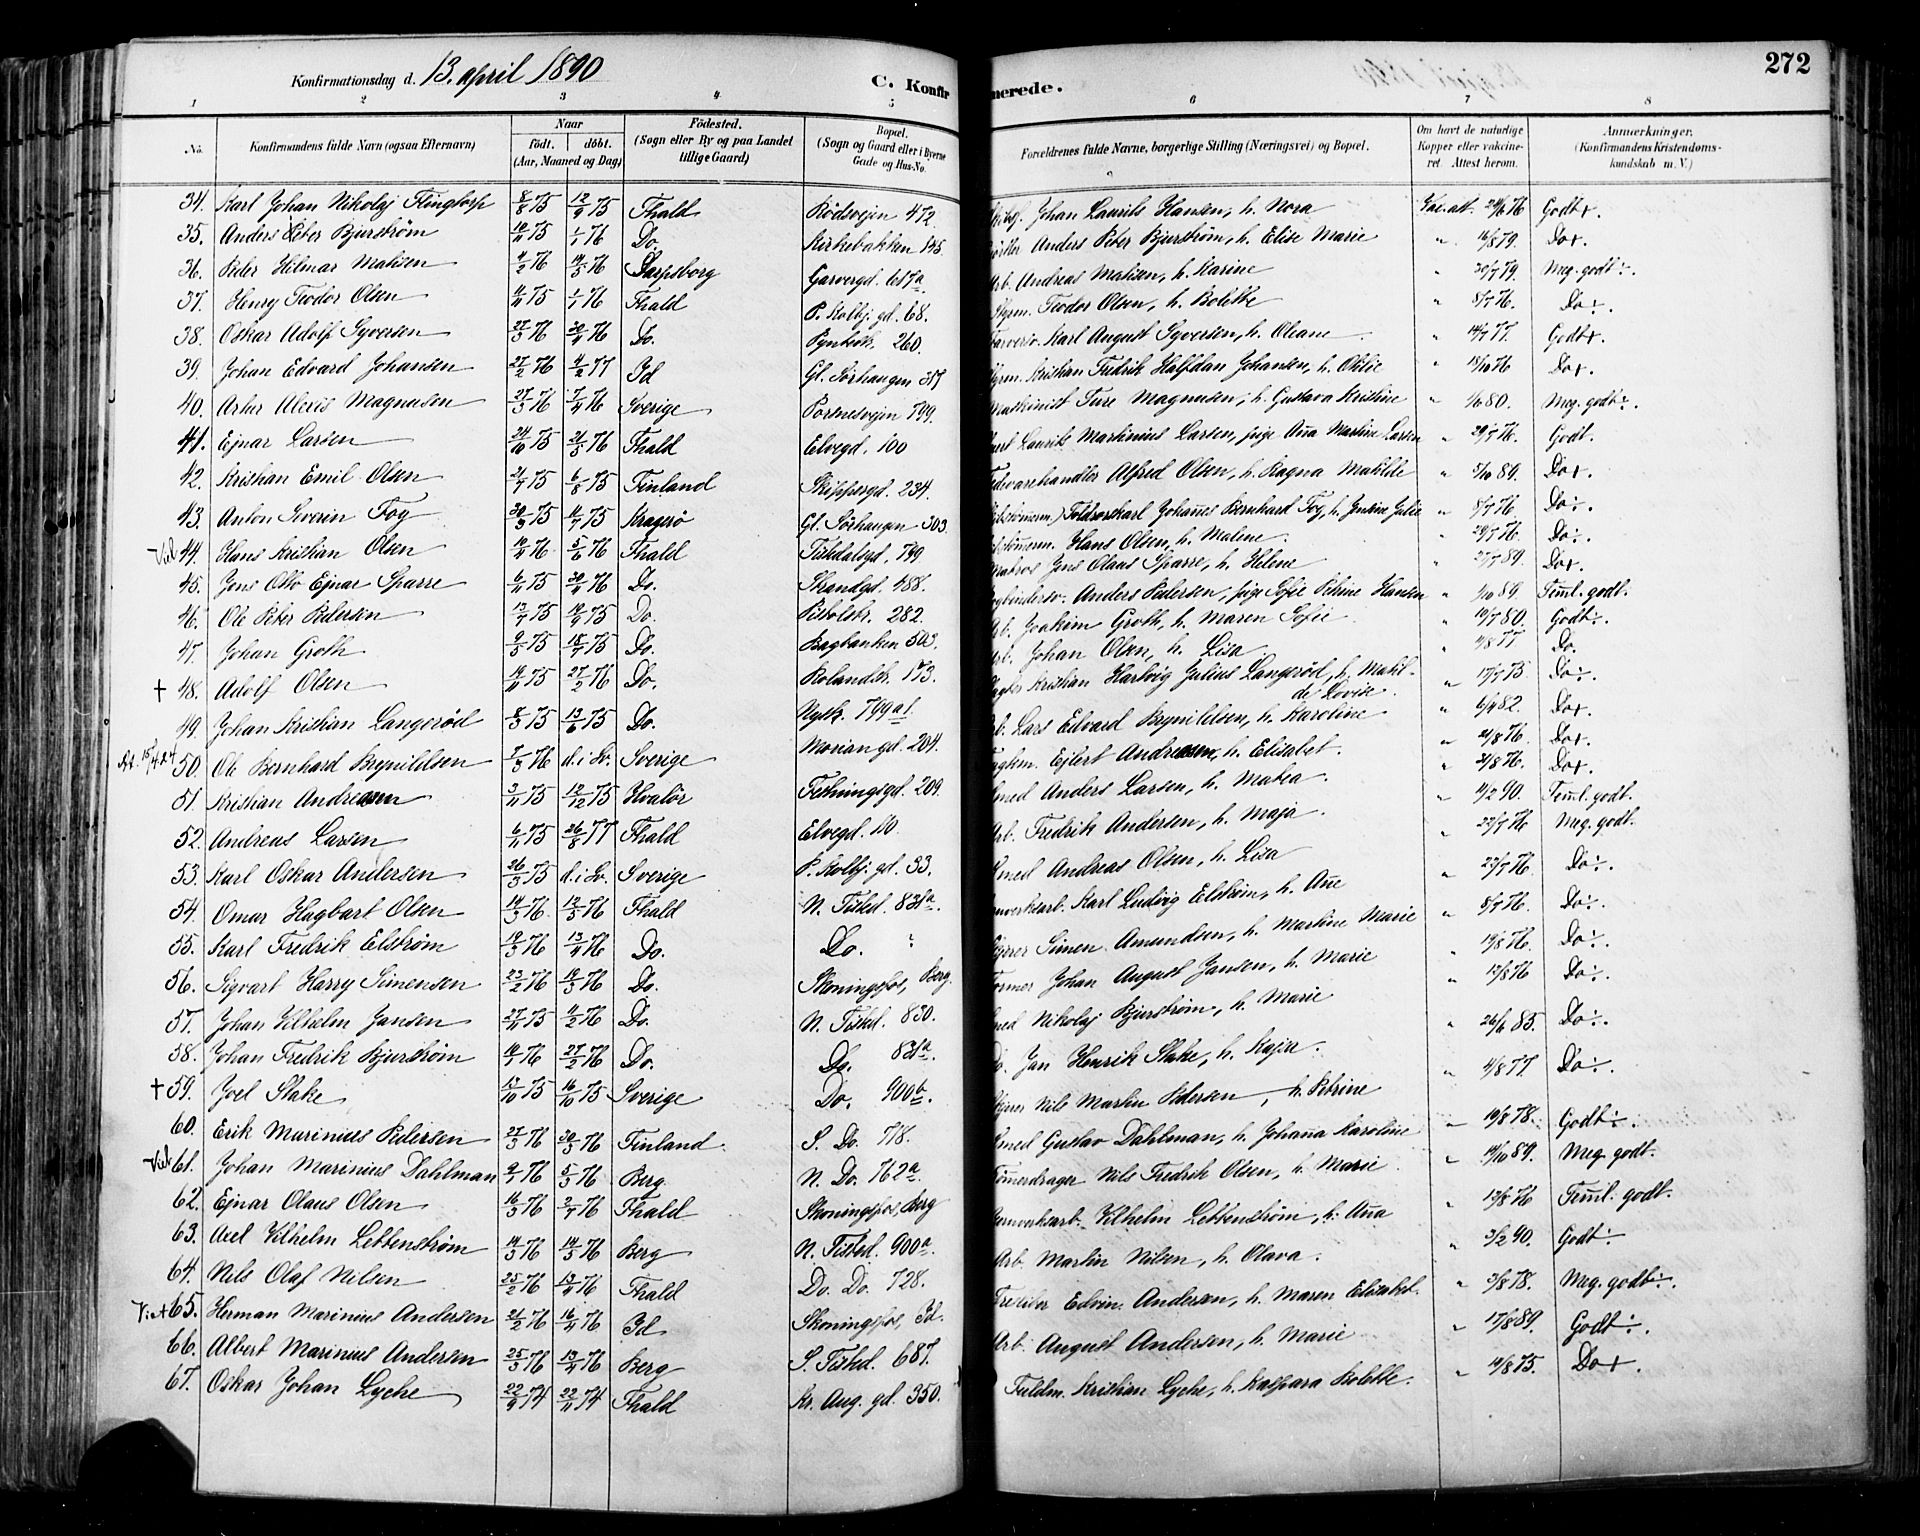 272
Konfirmationsdag d. 13. april 1890
C. Konfirmerede.
1 2 3 4 5 6 7 8
No. Konfirmandens fulde Navn (ogsaa Efternavn) Naar födt. döbt. (Aar, Maaned og Dag) Födested. (Sogn eller By og paa Landet tillige Gaard) Bopæl. (Sogn og Gaard eller i Byerne Gade og Hus-No. Forældrenes fulde Navne, borgerlige Stilling (Næringsvei) og Bopæl. Om havt de naturlige Kopper eller vakcineret. Attest herom. Anmærkninger. (Konfirmandens Kristendomskundskab m. V.)
34. Karl Johan Nikolaj Flingtorp 8/8 75 12/9 75 Fhald Rödsvejen 472 Johan Laurits Hansen, h. Nora Vac. att. 24/6 76 Godt+.
35. Anders Peter Bjurström 10/11 75 1/1 76 Do. Kirkebakken 145. Anders Peter Bjurström, h. Elise Marie " 16/8 79. Do+.
36. Peder Hilmar Matisen 4/2 76 14/5 76 Sarpsborg Garvergd. 617a Arb. Andreas Matisen, h. Karine " 30/7 79. Meg. godt÷.
37. Henry Teodor Olsen 4/11 75 1/1 76 Fhald P. Kolbj. gd. 68. Styrm. Teodor Olsen, h. Bolette " 8/7 76. Do÷.
38. Oskar Adolf Syversen 27/3 76 30/4 76 Do. Pyntestr. 260. Farversv. Karl August Syversen, h. Oleane " 14/7 77. Godt+.
39. Johan Edvard Johansen 27/2 76 4/2 77 Id Gl. Sörhaugen 317 Styrm. Kristian Fredrik Halfdan Johansen, h. Otilie " 15/10 76 Do+.
40. Artur Alexis Magnusen 27/3 76 7/4 76 Sverige Pornesvejen 799. Maskinist Ture Magnusen, h. Gustava Kristine " 1/6 80. Meg. godt÷.
41. Ejnar Larsen 24/10 75 21/5 76 Fhald Elvegd. 100 Laurits Martinius Larsen, pige Aña Martine Larsen " 29/7 76. Godt.
42. Kristian Emil Olsen 21/7 75 6/8 75 Finland Skippergd. 234. Fedevarehandler Alfred Olsen, h. Ragna Matilde " 5/10 89. Do+.
43. Anton Severin Foy 30/3 75 11/7 75 Kragerö Gl. Sörhaugen 303. Toldvorskarl Johañes Bernhard Foy, h. Jutine Julie " 8/7 76. Do÷.
44. Hans Kristian Olsen 10/4 76 5/6 76 Fhald Tistdalsgd. 799 Hans Olsen, h. Malene " 29/7 76. Do÷.
45. Jens Otto Ejnar Sparre 6/11 75 30/4 76 Do. Strandgd. 488. Matros Jens Olaus Sparre, h. Helene " 27/7 89. Do+.
46. Ole Peter Pedersen 13/7 75 19/9 75 Do. Pistolstr. 282. Bogbindersv. Anders Pedersen, pige Sofie Petrine Hansen " 1/10 89. Teml. godt.
47. Johan Groth 9/5 75 18/7 75 Do. Bagbanken 503. Arb. Joakim Groth, h. Maren Sofie " 19/7 80. Godt÷.
† 48. Adolf Olsen 14/11 75 27/2 76 Do. Rolandstr. 173. Arb. Johan Olsen, h. Lisa " 11/8 77 Do.
49. Johan Kristian Langeröd 8/3 75 13/6 75 Do. Nystr. 799a1. Kristian Hartvig Julius Langeröd, h. Matilde Lovise " 17/7 75. Do÷.
50. Ole Bernhard Brynildsen 7/3 76 d. i Sv. Sverige Moriangd. 204. Arb. Lars Edvard Brynildsen, h. Karoline " 6/4 82. Do+.
51. Kristian Andreasen 3/11 75 12/12 75 Hvalör Festningsgd. 209. Ejlert Andreasen, h. Elisabet " 21/8 76. Do+.
52. Andreas Larsen 6/11 75 26/8 77 Fhald Elvegd. 110. Smed Anders Larsen, h. Matea " 31/8 76. Do+.
53. Karl Oskar Andersen 26/3 75 d. i Sv. Sverige P. Kolbj. gd. 33. Arb. Fredrik Andersen, h. Maja " 11/2 90. Teml. godt.
54. Omar Hagbart Olsen 14/3 76. 12/5 76 Fhald N. Tisted. 831a. Smed Andreas Olsen, h. Lisa " 22/7 76 Meg. godt.
55. Karl Fredrik Elström 19/3 76 13/4 76 Do. Do. " Karl Ludvig Elström, h. Añe " 23/7 76. Do÷.
56. Sigvart Harry Simensen 23/2 76 19/3 76 Do. Skoningsfos, Berg. Simen Amundsen, h. Martine Marie " 8/7 76. Do÷.
57. Johan Vilhelm Jansen 27/11 75 4/2 76 Do. N. Tisted. 830. Former Johan August Jansen, h. Marie " 19/8 76. Do÷.
58. Johan Fredrik Bjurström 14/1 76 27/2 76 Do. Do. 831a. Smed Nikolaj Bjurström, h. Marie " 13/8 76 Do÷.
† 59. Joel Stake 13/10 75 16/10 75 Sverige Do. 900b. Do. Jan Henrik Stake, h. Kaja " 26/6 85. Do÷.
60. Erik Marinius Pedersen 27/3 76 30/3 76 Finland. S. Do. 718. Nils Martin Pedersen, h. Petrine " 4/8 77. Do÷.
61. Johan Marinius Dahlman 9/1 76 5/3 76 Berg. N. Do. 762a. Smed Gustav Dahlman, h. Johaña Karoline " 19/8 78. Godt÷.
62. Ejnar Olaus Olsen 16/3 76 2/7 76 Fhald Skoningsfos, Berg Tömerdrager Nils Fredrik Olsen, h. Marie " 14/10 89. Meg. godt.
63. Axel Vilhelm Lettenström 14/3 76 14/5 76 Berg N. Tisted. 900a. Vilhelm Lettenström, h. Aña " 13/8 76 Teml. godt.
64. Nils Olaf Nilsen 25/2 76 13/4 76 Fhald Do. Do. 728. Arb. Martin Nilsen, h. Olava " 3/2 90. Godt÷.
65. Herman Marinius Andersen 21/2 76 16/4 76 Id Skoningsfos, Id. Edvin Andersen, h. Maren Elisabet. " 3/8 78. Meg. godt÷.
66. Albert Marinius Andersen 25/3 76 13/4 76 Berg S. Tisted. 687. Arb. August Andersen, h. Marie " 17/8 89. Godt÷.
67. Oskar Johan Lyche 22/9 74 22/11 74 Fhald Kr. Aug. gd. 350. Fuldm. Kristian Lyche, h. Kaspara Kolette. " 14/8 75. Do+.